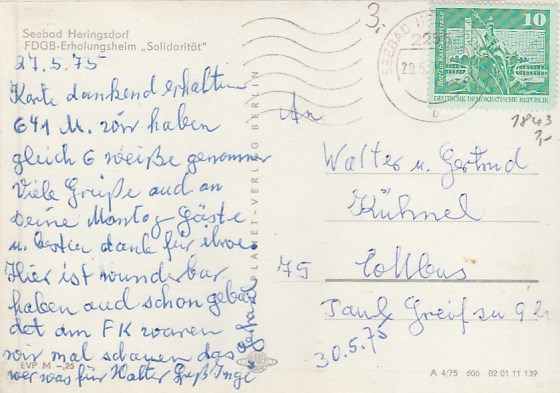 Seebad Heringsdorf
FDGB-Erholungsheim „Solidarität"
27.5.75
Karte dankend erhalten
641 M. wir haben
gleich 6 weiße genommen
Viele Grüße auch an
Deine Montag-Gäste
u. besten dank für ihre
Hier ist wunderbar
haben auch schon geba
det am FK waren
wir mal schauen das
wer was für Walter Gruß Inge
EVP M -,25
PLANET-VERLAG BERLIN
3,-
SEEBAD
10
Berlin-Rathausstrasse
DEUTSCHE DEMOKRATISCHE REPUBLIK
1843
3,-
An
Walter u. Gertrud
Kühnel
75 Cottbus
Paul Greif
30.5.75
A 4/75 606 02 01 11 139